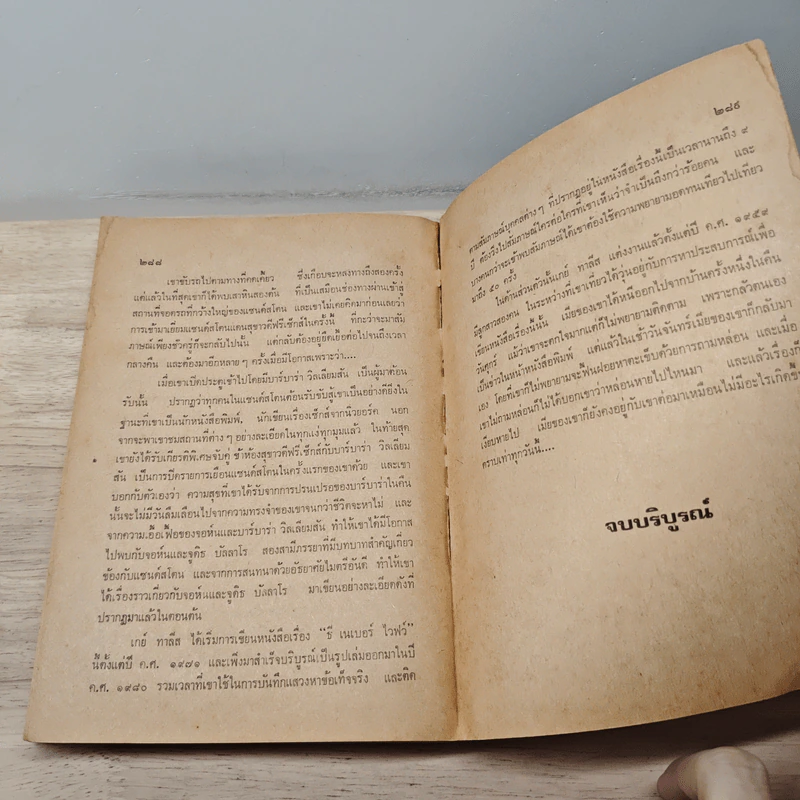 ๒๘๘
เขาขับรถไปตามทางที่คดเคี้ยว ซึ่งเกือบจะหลงทางถึงสองครั้ง
แต่แล้วในที่สุดเขาก็ได้พบเสาหินสองต้น ที่เป็นเสมือนช่องทางผ่านเข้าสู่
สถานที่จอดรถที่กว้างใหญ่ของแซนด์สโตน และเขาไม่เคยคิดมาก่อนเลยว่า
การเข้ามาเยี่ยมแซนด์สโตนแดนสุขาวดีฟรีเซ็กส์ในครั้งนี้ ที่กะว่าจะมาสัม
ภาษณ์เพียงชั่วครู่ก็จะกลับไปนั้น แต่กลับต้องอยู่ยืดเยื้อต่อไปจนถึงเวลา
กลางคืน และต้องมาอีกหลายๆ ครั้งเมื่อมีโอกาสเพราะว่า....
เมื่อเขาเปิดประตูเข้าไปโดยมีบาร์บาร่า วิลเลียมสัน เป็นผู้มาต้อน
รับนั้น ปรากฏว่าทุกคนในแซนด์สโตนต้อนรับขับสู้เขาเป็นอย่างดียิ่งใน
ฐานะที่เขาเป็นนักหนังสือพิมพ์, นักเขียนเรื่องเซ็กส์จากนิวยอร์ค นอก
จากจะพาเขาชมสถานที่ต่างๆ อย่างละเอียดในทุกแง่ทุกมุมแล้ว ในท้ายสุด
เขายังได้รับเกียรติพิเศษจับคู่ เข้าห้องสุขาวดีฟรีเซ็กส์กับบาร์บาร่า วิลเลียม
สัน เป็นการปิดรายการเยือนแซนด์สโตนในครั้งแรกของเขาด้วย และเขา
บอกกับตัวเองว่า ความสุขที่เขาได้รับจากการปรนเปรอของบาร์บาร่าในคืน
นั้นจะไม่มีวันลืมเลือนไปจากความทรงจำของเขาจนกว่าชีวิตจะหาไม่ และ
จากความเอื้อเฟื้อของจอห์นและบาร์บาร่า วิลเลียมสัน ทำให้เขาได้มีโอกาส
ไปพบกับจอห์นและจูดิธ บัลลาโร สองสามีภรรยาที่มีบทบาทสำคัญเกี่ยว
ข้องกับแซนด์สโตน และจากการสนทนาด้วยอัธยาศัยไมตรีอันดี ทำให้เขา
ได้เรื่องราวเกี่ยวกับจอห์นและจูดิธ บัลลาโร มาเขียนอย่างละเอียดดังที่
ปรากฏมาแล้วในตอนต้น
เกย์ ทาลีส ได้เริ่มการเขียนหนังสือเรื่อง “ธี เนเบอร์ ไวฟว์”
นี้ตั้งแต่ปี ค.ศ. ๑๙๗๑ และเพิ่งมาสำเร็จบริบูรณ์เป็นรูปเล่มออกมาในปี
ค.ศ. ๑๙๘๐ รวมเวลาที่เขาใช้ในการบันทึกแสวงหาข้อเท็จจริง และติด
๒๘๙
ตามสัมภาษณ์บุคคลต่างๆ ที่ปรากฏอยู่ในหนังสือเรื่องนี้เป็นเวลานานถึง ๙
ปี ต้องวิ่งไปสัมภาษณ์ใครต่อใครที่เขาเห็นว่าจำเป็นถึงกว่าร้อยคน และ
บางคนกว่าจะเข้าพบสัมภาษณ์ได้เขาต้องใช้ความพยายามอดทนเทียวไปเทียว
มาถึง ๕๐ ครั้ง
ในด้านส่วนตัวนั้นเกย์ ทาลีส แต่งงานแล้วตั้งแต่ปี ค.ศ. ๑๙๕๙
มีลูกสาวสองคน ในระหว่างที่เขาเที่ยวได้วุ่นอยู่กับการหาประสบการณ์เพื่อ
เขียนหนังสือเรื่องนี้นั้น เมียของเขาได้หนีออกไปจากบ้านครั้งหนึ่งในคืน
วันศุกร์ แม้ว่าเขาจะตกใจมากแต่ก็ไม่พยายามติดตาม เพราะกลัวตนเอง
เป็นข่าวในหน้าหนังสือพิมพ์ แต่แล้วในเช้าวันจันทร์เมียของเขาก็กลับมา
เอง โดยที่เขาก็ไม่พยายามจะฟื้นฝอยหาตะเข็บด้วยการถามหล่อน และเมื่อ
เขาไม่ถามหล่อนก็ไม่ได้บอกเขาว่าหล่อนหายไปไหนมา และแล้วเรื่องก็
เงียบหายไป เมียของเขาก็ยังคงอยู่กับเขาต่อมาเหมือนไม่มีอะไรเกิดขึ้น
ตราบเท่าทุกวันนี้....
จบบริบูรณ์